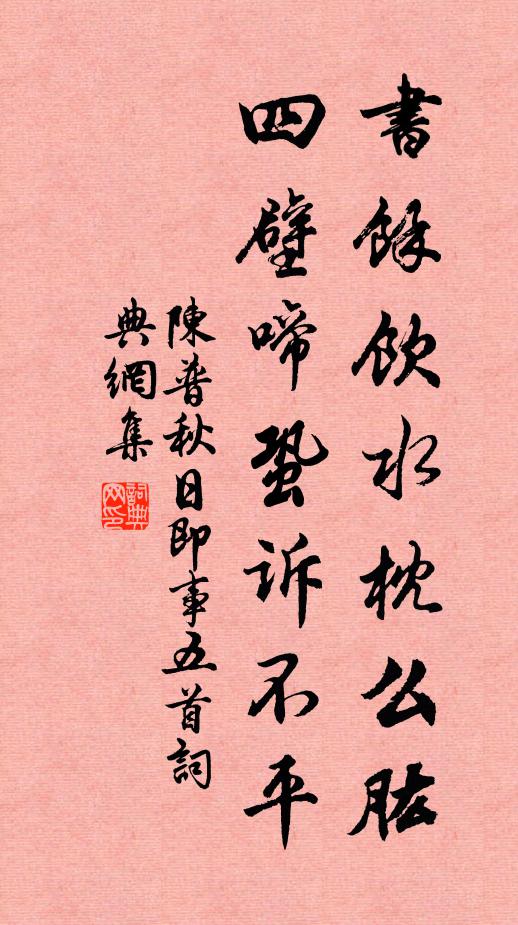 書餘飲水枕公肱
四壁啼蛩诉不平
陳普秋日即事五首詞
典網集
詞典
网印